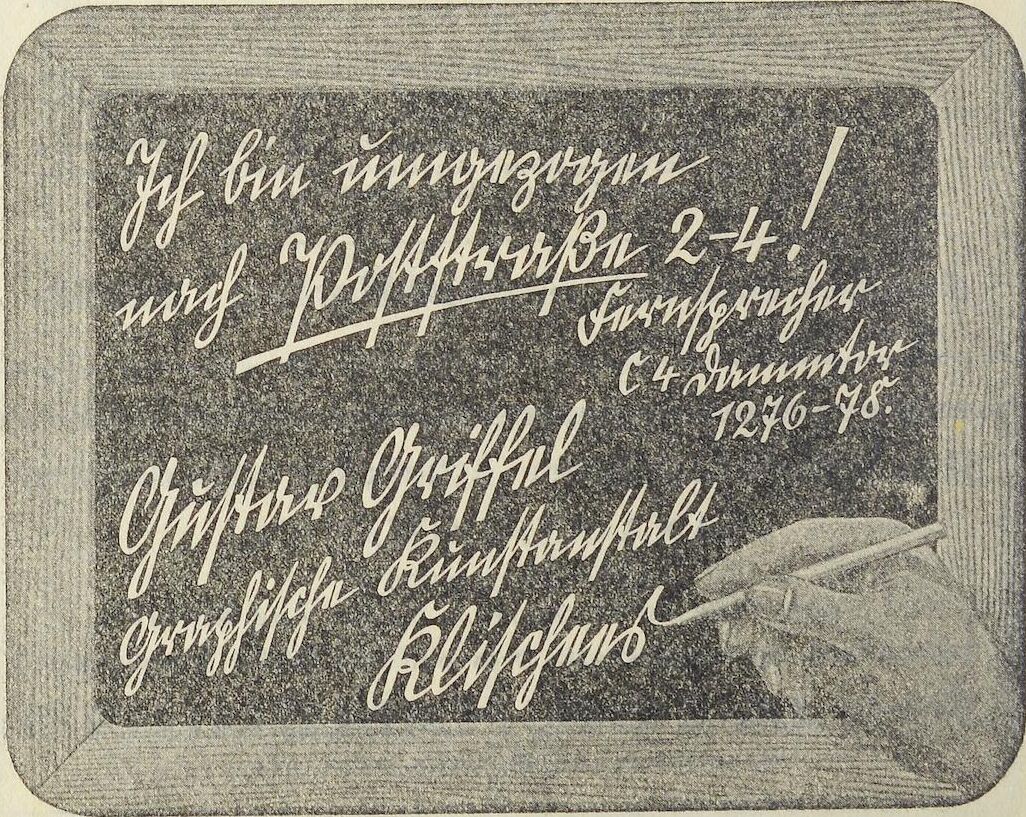 Ich bin umgezogen
nach Poststraße 2-4!
Fernsprecher
C 4 Dammtor
1276-78.
Gustav Griffel
Graphische Kunstanstalt
Klischees